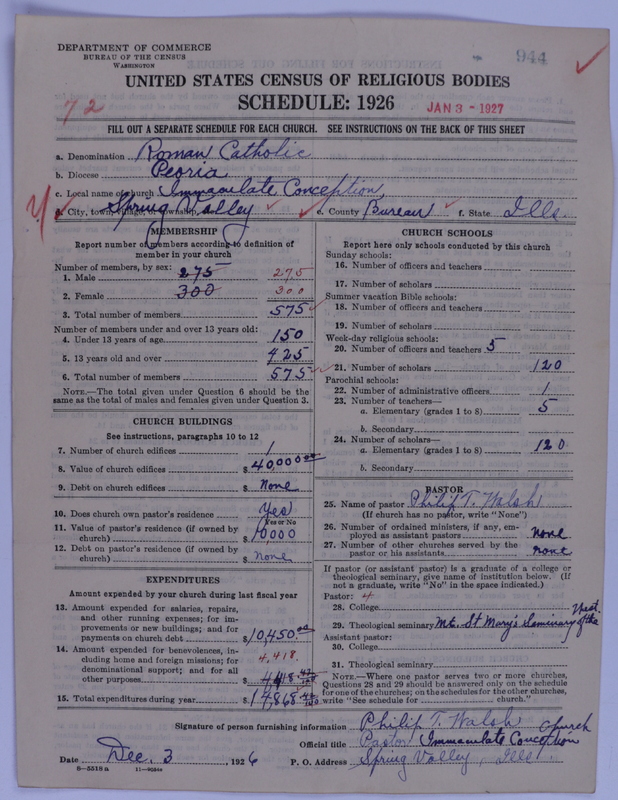 DEPARTMENT OF COMMERCE
BUREAU OF THE CENSUS
WASHINGTON
944
UNITED STATES CENSUS OF RELIGIOUS BODIES
SCHEDULE: 1926
JAN 3 - 1927
72
FILL OUT A SEPARATE SCHEDULE FOR EACH CHURCH. SEE INSTRUCTIONS ON THE BACK OF THIS SHEET
a. Denomination Roman Catholic
b. Diocese Peoria
c. Local name of church Immaculate Conception
d. City, town, village, or township Spring Valley e. County Bureau f. State Ills.
MEMBERSHIP
Report number of members according to definition of
member in your church
Number of members, by sex:
1. Male 275 275
2. Female 300 300
3. Total number of members 575
Number of members under and over 13 years old:
4. Under 13 years of age 150
5. 13 years old and over 425
6. Total number of members 575
NOTE.—The total given under Question 6 should be the
same as the total of males and females given under Question 3.
CHURCH BUILDINGS
See instructions, paragraphs 10 to 12
7. Number of church edifices 1
8. Value of church edifices $ 40,000 00
9. Debt on church edifices $ None
10. Does church own pastor's residence Yes
Yes or No
11. Value of pastor's residence (if owned by
church) $ 10000
12. Debt on pastor's residence (if owned by
church) $ None
EXPENDITURES
Amount expended by your church during last fiscal year
13. Amount expended for salaries, repairs,
and other running expenses; for im-
provements or new buildings; and for
payments on church debt $ 10,450.00
14. Amount expended for benevolences, in-
cluding home and foreign missions; for
denominational support; and for all
other purposes 4,418. $ 4418
15. Total expenditures during year $ 14,868
CHURCH SCHOOLS
Report here only schools conducted by this church
Sunday schools:
16. Number of officers and teachers
17. Number of scholars
Summer vacation Bible schools:
18. Number of officers and teachers
19. Number of scholars
Week-day religious schools:
20. Number of officers and teachers 5
21. Number of scholars 120
Parochial schools:
22. Number of administrative officers 1
23. Number of teachers—
a. Elementary (grades 1 to 8) 5
b. Secondary
24. Number of scholars—
a. Elementary (grades 1 to 8) 120
b. Secondary
PASTOR
25. Name of pastor Philip T. Walsh
(If church has no pastor, write "None")
26. Number of ordained ministers, if any, em-
ployed as assistant pastors none
27. Number of other churches served by the
pastor or his assistants none
If pastor (or assistant pastor) is a graduate of a college or
theological seminary, give name of institution below. (If
not a graduate, write "No" in the space indicated.)
Pastor: 4
28. College
29. Theological seminary Mt. St Mary's Seminary of the West.
Assistant pastor:
30. College
31. Theological seminary
NOTE.—Where one pastor serves two or more churches,
Questions 28 and 29 should be answered only on the schedule
for one of the churches; on the schedules for the other churches,
write "See schedule for church."
Signature of person furnishing information Philip T. Walsh
Official title Pastor Immaculate Conception Church
Date Dec. 3, 1926 P. O. Address Spring Valley, Ills
8—5518 a